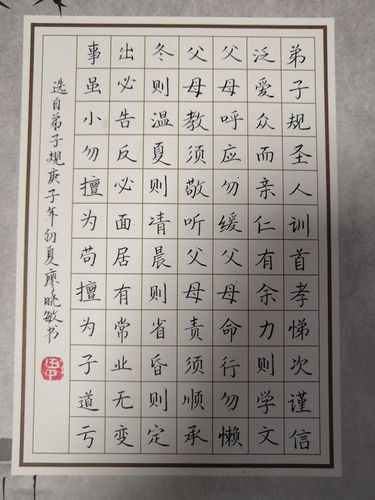 弟子规圣人训首孝悌次谨信
泛爱众而亲仁有余力则学文
父母呼应勿缓父母命行勿懒
父母教须敬听父母责须顺承
冬则温夏则凊晨则省昏则定
出必告反必面居有常业无变
事虽小勿擅为苟擅为子道亏
选自弟子规庚子年初夏廖晓敏书